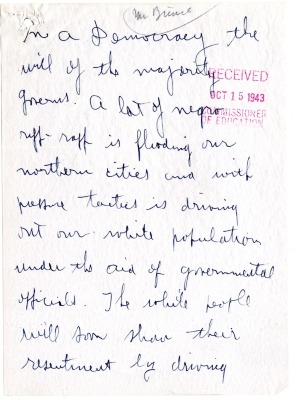 Mr Breece
In a Democracy the
will of the majority
RECEIVED
governs. A lot of negro
OCT 15 1943
COMMISSIONER
OF EDUCATION
riff-raff is flooding our
northern cities and with
pressure tactics is driving
out our white population
under the aid of governmental
officials. The white people
will soon show their
resentment by driving